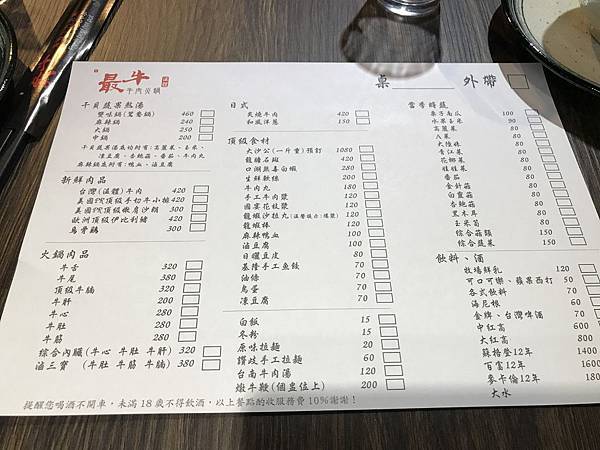 最牛
牛肉炎鍋
桌 外帶
干貝蔬果熱湯
雙味鍋(鴛鴦鍋) 460
麻辣鍋 240
大鍋 250
中鍋 200
干貝蔬果湯底均附有:高麗菜、玉米、
凍豆腐、杏鮑菇、番茄、牛肉丸
麻辣鍋底均附有:鴨血、油豆腐
新鮮肉品
台灣(溫體)牛肉 420
美國頂級手切牛小排 420
美國頂級嫩肩沙朗 300
歐洲頂級伊比利豬 420
烏骨雞 300
火鍋肉品
牛舌 320
牛尾 380
頂級牛腩 320
牛肝 200
牛心 280
牛肚 280
牛筋 280
綜合內臟(牛心 牛肚 牛肝) 320
滷三寶 (牛肚 牛筋 牛腩) 380
日式
炙燒牛肉 420
和風洋蔥 150
頂級食材
大沙公(一斤重)預訂 1080
龍膽石斑 420
口湖無毒白蝦 280
生鮮軟絲 280
牛肉丸 180
手工牛肉漿 120
國宴花枝漿 180
龍蝦沙拉丸 120
龍蝦棒 120
麻辣鴨血 100
油豆腐 80
日曬豆皮 80
基隆手工魚餃 70
油條 70
鳥蛋 70
凍豆腐 70
白飯 15
冬粉 15
原味拉麵 20
讚岐手工拉麵 60
台南牛肉湯 120
燉牛鞭(個盅位上) 200
當季時蔬
栗子南瓜 100
水果玉米 90
高麗菜 80
A菜 80
大陸妹 80
青江菜 80
花椰菜 80
娃娃菜 80
番茄 80
金針菇 80
白靈菇 80
杏鮑菇 80
黑木耳 80
玉米筍 80
綜合菇類 150
綜合蔬菜 150
飲料、酒
牧場鮮乳 120
可口可樂、蘋果西打 50
各式飲料 70
海尼根 60
金牌、台灣啤酒 70
中紅高 600
大紅高 800
蘇格登12年 1400
百富12年 1600
麥卡倫12年 1800
大水
提醒您喝酒不開車,未滿18歲不得飲酒,以上餐點酌收服務費10%謝謝!